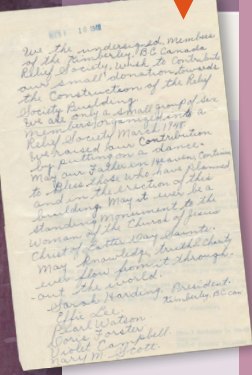 We the undersigned Members
of the Kimberley, BC Canada
Relief Society, wish to Contribute
our small donation towards
the Construction of the Relief
Society Building
We are only a small group of six
members, organized into a
Relief Society March 1948
We raised our Contribution
by putting on a dance.
May our Father in Heaven, Continue
to Bless those who have planned
and in the erection of this
building. May it ever be a
standing Monument to the
Woman of the Church of Jesus
Christ of Latter Day Saints.
May knowledge, truth & Charity
ever flow from it through-
out the world.
Sarah Harding. President.
Kimberley, BC Can
Effie Lee
Pearl Watson
Doris Forster
Violet Campbell.
Mary M. Scott.